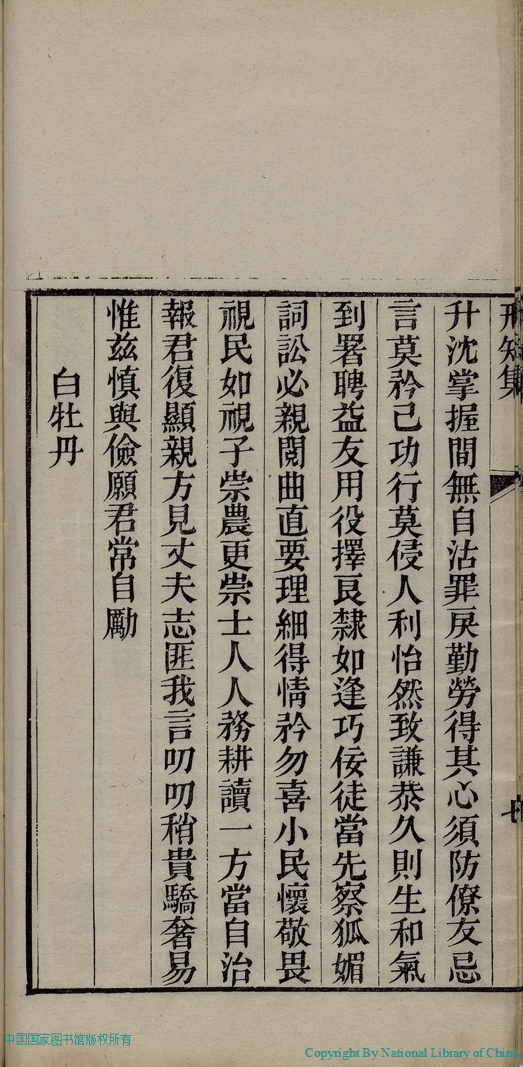 升沈掌握間無自沽罪戾勤勞得其心須防僚友忌
言莫矜己功行莫侵人利怡然致謙恭久則生和氣
到署聘益友用役擇良隸如逢巧佞徒當先察狐媚
詞訟必親閱曲直要理細得情矜勿喜小民懷敬畏
視民如視子崇農更崇士人人務耕讀一方當自治
報君復顯親方見丈夫志匪我言叨叨稍貴驕奢易
惟兹慎與儉願君常自勵
白牡丹
中国国家图书馆版权所有
Copyright By National Library of China